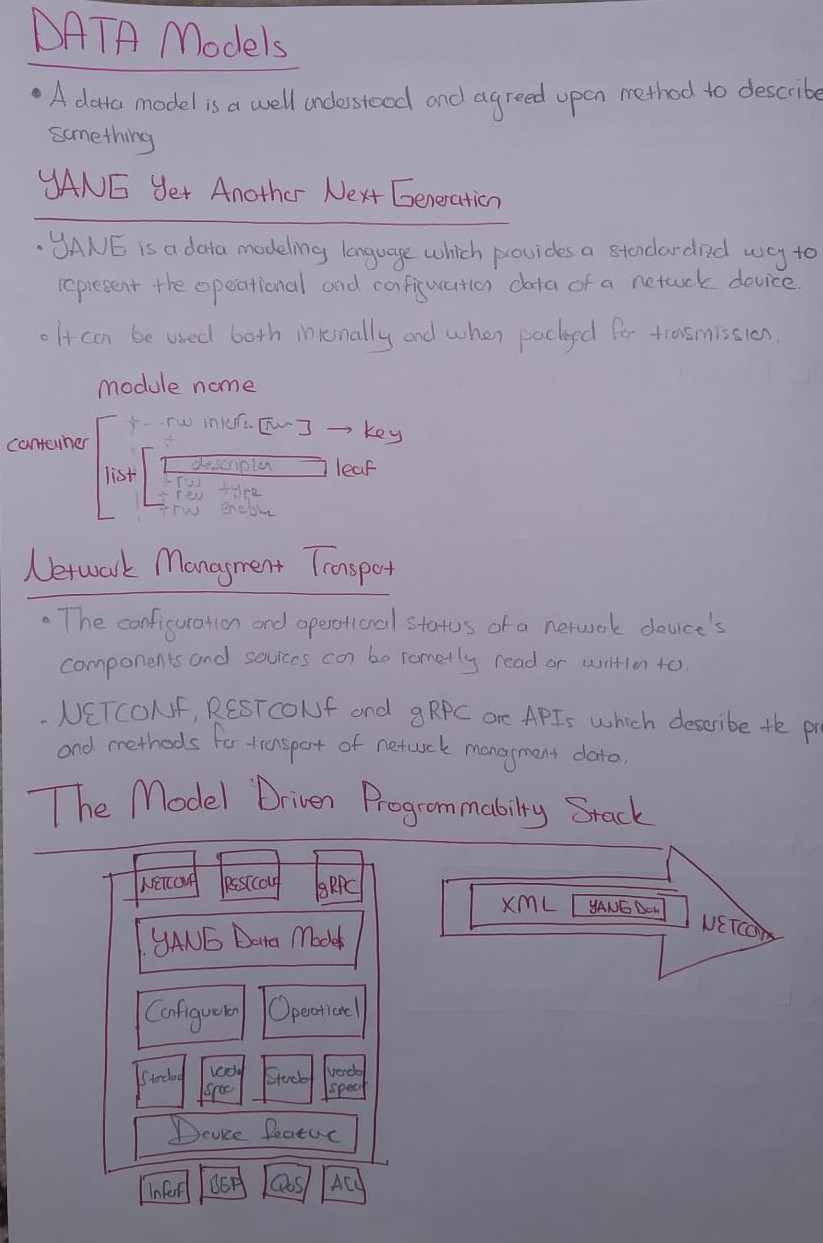 DATA Models
• A data model is a well understood and agreed upon method to describe
something
YANG Yet Another Next Generation
• YANG is a data modeling language which provides a standardized way to
represent the operational and configuration data of a network device.
• It can be used both internally and when packged for trasmission.
module name
+--rw interf. [ ] → key
container
list
description leaf
+rw
+rw type
+rw enable
Network Managment Transport
• The configuration and operational status of a network device's
components and services can be remotly read or written to.
• NETCONF, RESTCONF and gRPC are APIs which describe the pr
and methods for transport of network managment data.
The Model Driven Programmabilty Stack
NETCONF RESTCONF gRPC
YANG Data Models
XML YANG Data NETCONF
Configuration Operational
Standard Vendor spec Standard Vendor spec
Device feature
Interf BGP QoS ACL